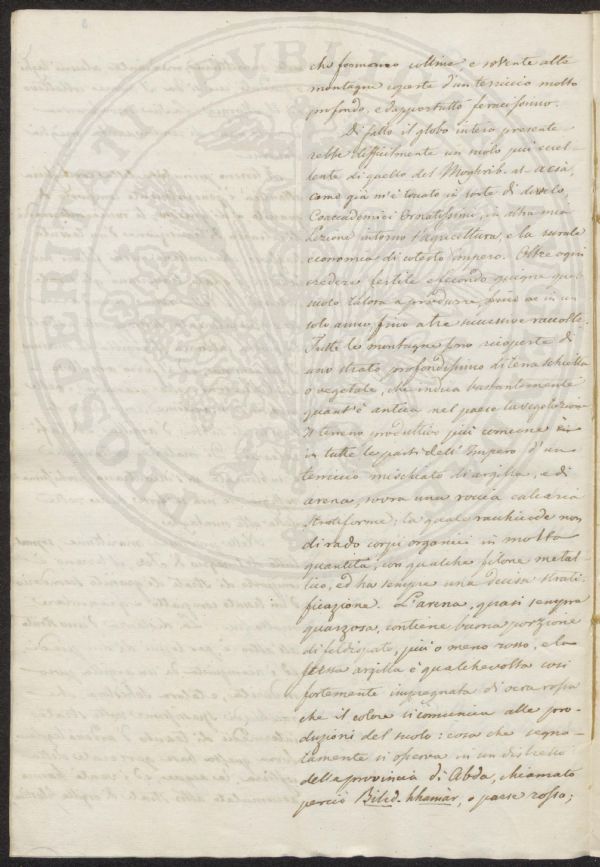 che formano colline e sovente alte
montagne coperte d'un terriccio molto
profondo, e dappertutto feracissimo.
Di fatto il globo intero presente
rebbe difficilmente un suolo più eccel-
lente di quello del Moghrib-al-acsà,
come già m'è toccato in sorte di dirvelo,
Coaccademici Ornatissimi, in altra mia
Lezione intorno l'agricoltura, e la rurale
economia di cotesto Impero. Oltre ogni
credere fertile e fecondo giugne quel
suolo talora a produrre, in un
solo anno, fino a tre successive raccolte.
Tutte le montagne sono ricoperte di
uno strato profondissimo di terra schietta
o vegetale, che indica bastantemente
quant'è antica nel paese la vegetazione.
Il terreno produttivo più comune
in tutte le parti dell'Impero è un
terriccio mischiato di argilla, e di
arena, sovra una roccia calcaria
stratiforme; la quale racchiude non
di rado corpi organici in molta
quantità, con qualche filone metal-
lico, ed ha sempre una decisa strati-
ficazione. L'arena, quasi sempre
quarzosa, contiene buona porzione
di feldispato, più o meno rosso, e la
stessa argilla è qualchevolta così
fortemente impregnata di ocra rossa
che il colore si comunica alle pro-
duzioni del suolo: cosa che segna-
tamente si osserva in un distretto
della provincia di Abda, chiamato
perciò Bilid-hhamàr, o paese rosso;
PROSPERITÀ PUBLICA